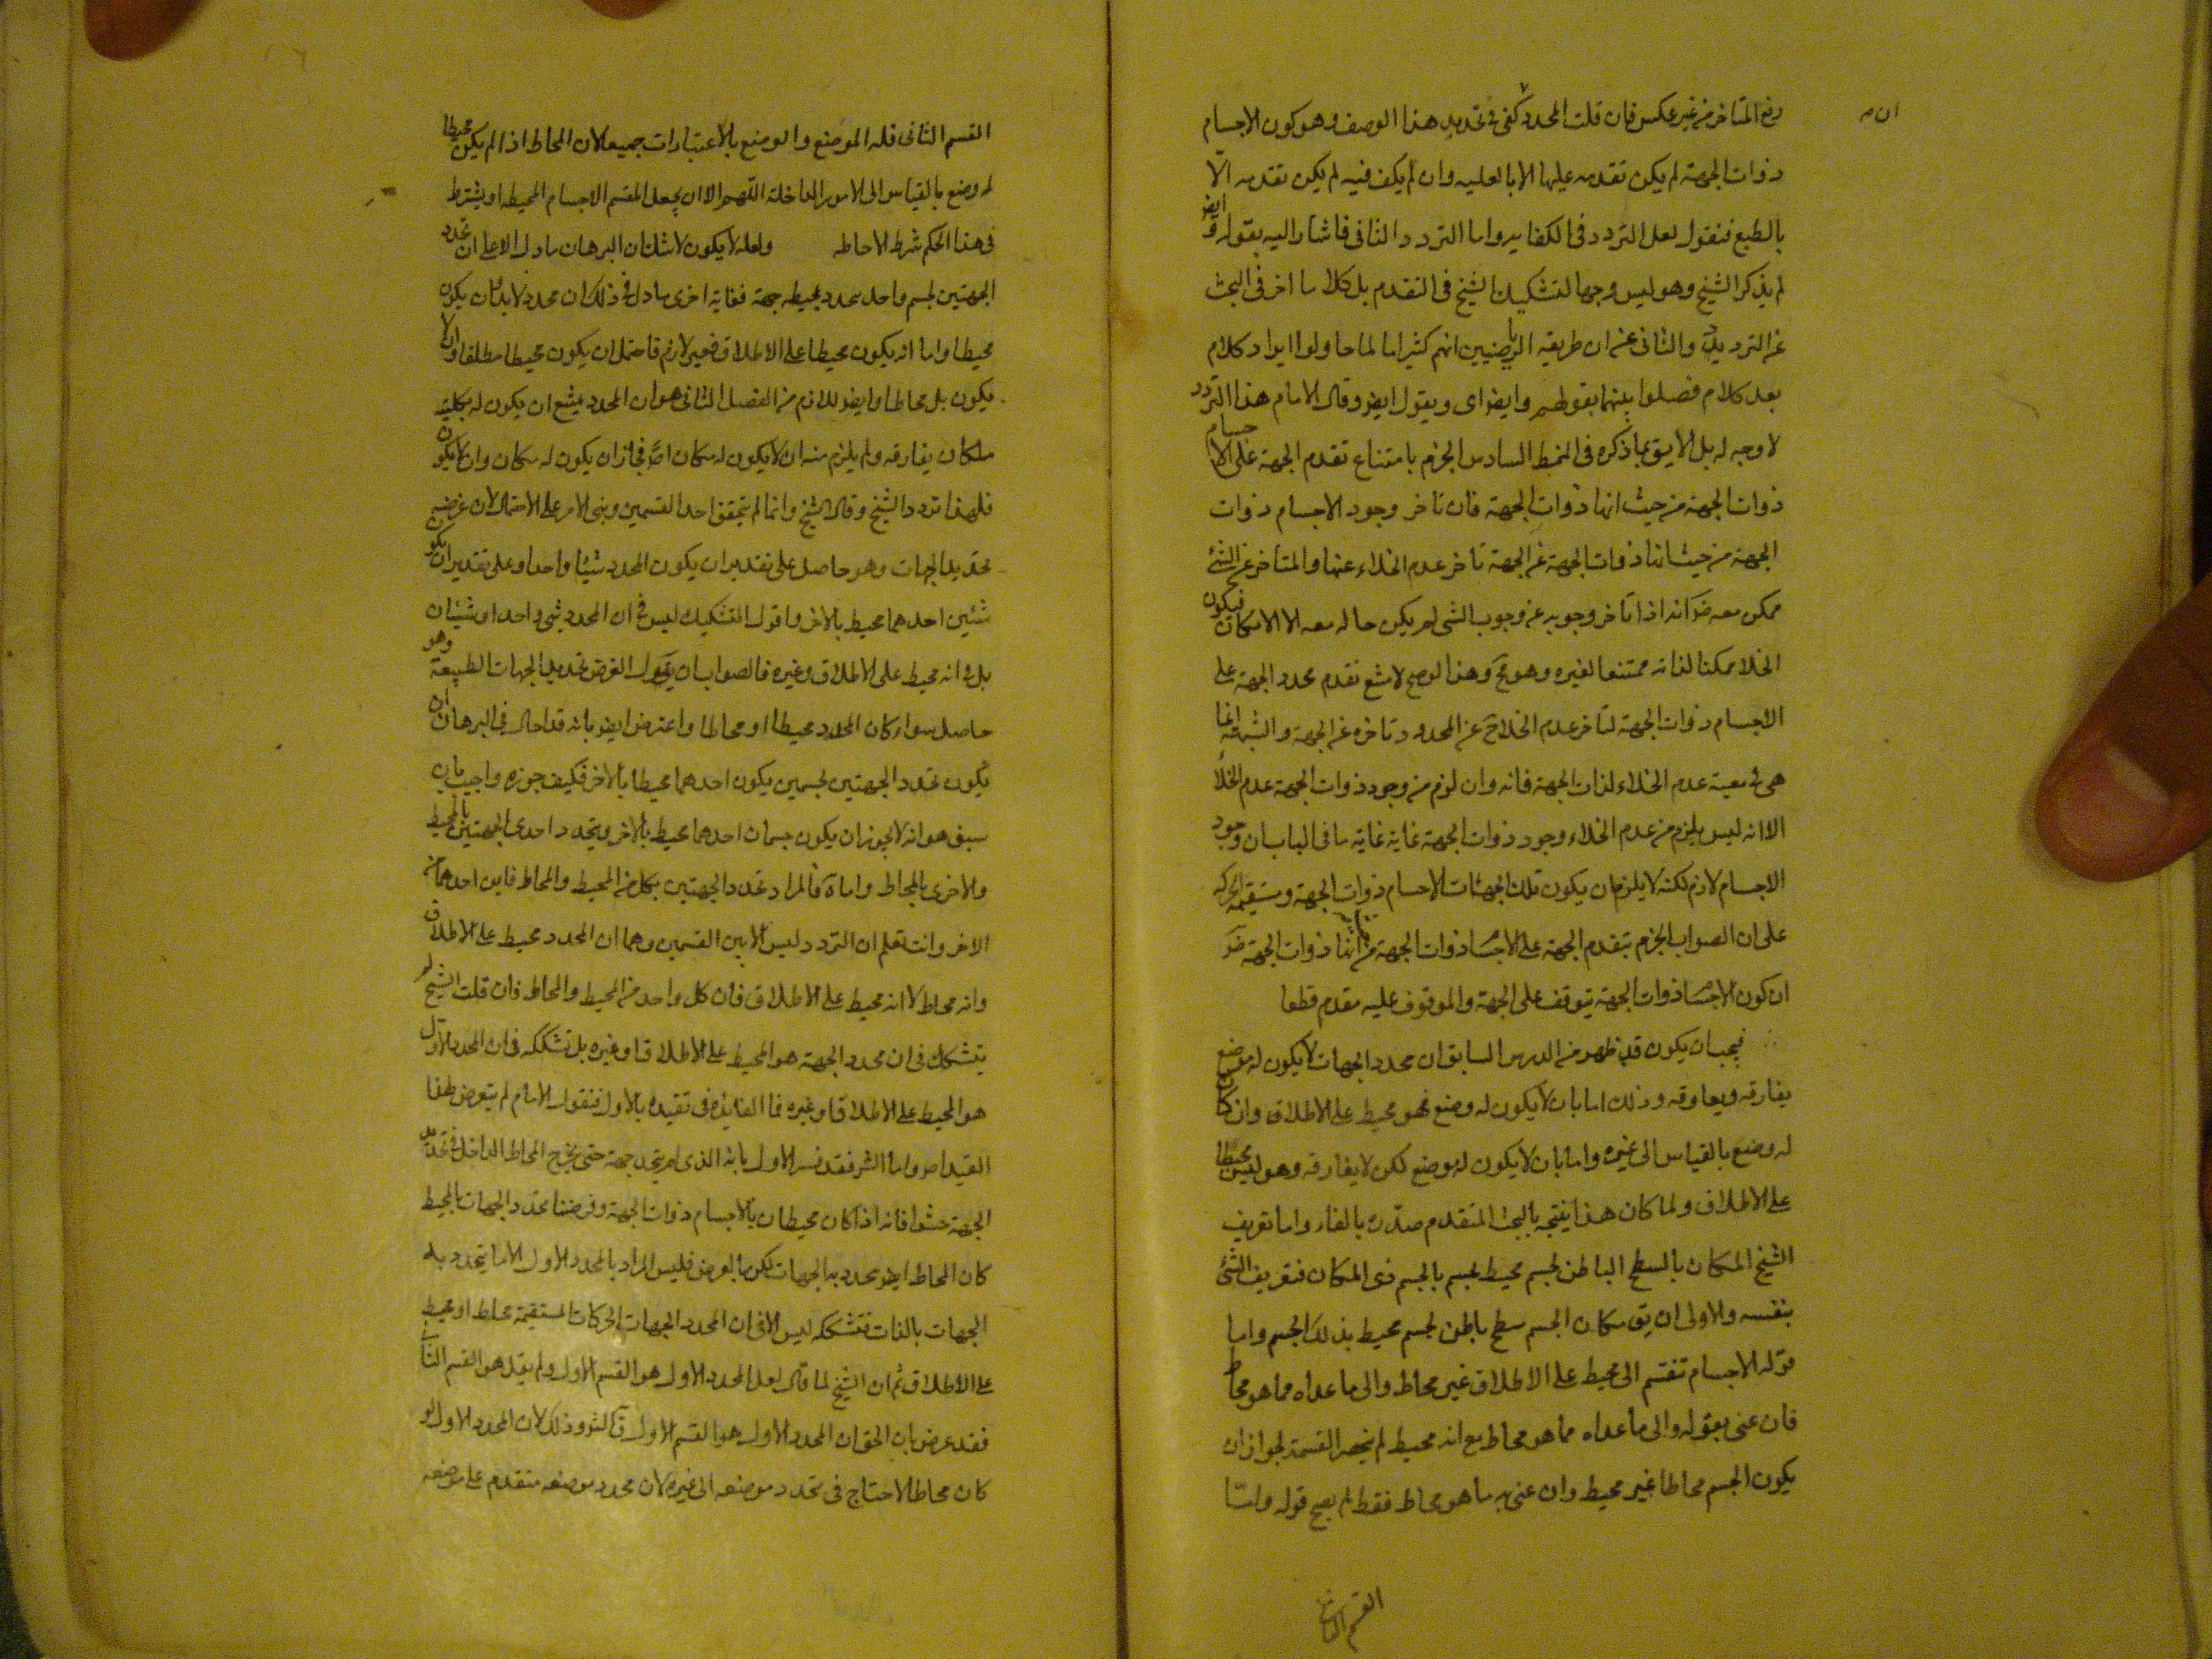 ان
رفع المتاخر من غير عكس فان قلت المحدد كفى فى تحديد هذا الوصف وهو كون الاجسام
ذوات الجهة لم يكن تقدمه عليها الا بالعليه وان لم يكف فيه لم يكن تقدمه الّا
بالطبع فنقول لعل التردد فى الكفايه واما التردد الثانى فاشار اليه بقوله وايض
لم يذكر الشيخ وهو ليس وجها لتشكيك الشيخ فى التقدم بل كلاما اخر فى البحث
عن الترديد والثانى عنه ان طريقه الرياضيين انهم كثيرا ما لما حاولوا ايراد كلام
بعد كلام فصلوا بينهما بقولهم وايض اى ويقول ايض وقال الامام هذا التردد
لا وجه له بل الاليق بما ذكره فى النمط السادس الجزم بامتناع تقدم الجهة على الاجسام
ذوات الجهة من حيث انها ذوات الجهة فان تاخر وجود الاجسام ذوات
الجهة من حيث انها ذوات الجهة عن الجهة تاخر عدم الخلاء عنها والمتاخر عن الشئ
ممكن معه ضو انه اذا تاخر وجوبه عن وجوب الشى لم يكن حاله معه الا الامكان فيكون
الخلا ممكنا لذاته ممتنعا لغيره وهو مح وهذا لو صح لامتنع تقدم محدد الجهة على
الاجسام ذوات الجهة لتاخر عدم الخلا ح عن المحدد وتاخره عن الجهة والشبهة انما
هى فى معية عدم الخلاء لذات الجهة فانه وان لزم من وجود ذوات الجهة عدم الخلأ
الا انه ليس يلزم من عدم الخلاء وجود ذوات الجهة غاية غاية ما فى الباب ان وجود
الاجسام لازم لكنه لا يلزم ان يكون تلك الاجسام ذوات الجهة ومستقيمة الحركة
على ان الصواب الجزم بتقدم الجهة على الاجسا ذوات الجهة من انها ذوات الجهة ضو
ان كون الاجسا ذوات الجهة يتوقف على الجهة والموقوف عليه مقدم قطعا
فيجب ان يكون قد ظهر من الدرس السابق ان محدد الجهات لا يكون له موضع
يفارقه ويعاوقه وذلك اما بان لا يكون له وضع فهو محيط على الاطلاق وان كان
له وضع بالقياس الى غيره واما بان لا يكون له موضع لكن لا يفارقه وهو ليس محيطا
على الاطلاق ولما كان هذا ينتجه بالبحث المتقدم صدّره بالفاء واما تعريف
الشيخ المكان بالسطح الباطن لجسم محيط لجسم بالجسم ذى المكان فتعريف الشئ
بنفسه والاولى ان يق مكان الجسم سطح باطن لجسم محيط بذلك الجسم واما
قوله الاجسام تنقسم الى محيط على الاطلاق غير محاط والى ما عداه مما هو محاط
فان عنى بقوله والى ما عداه مما هو محاط مع انه محيط لم ينحصر القسمة لجواز ان
يكون الجسم محاطا غير محيط وان عنى به ما هو محاط فقط لم يصح قوله وامّا
القسم الثانى
القسم الثانى فله الموضع والوضع بالاعتبارات جميعا لان المحاط اذا لم يكن محيطا
له وضع بالقياس الى الامور الداخلة اللّهم الا ان يجعل المقسم الاجسام المحيطه او يشترط
فى هذا الحكم شرط الاحاطه ولعله لا يكون لا شك ان البرهان ما دل الا على ان تحدد
الجهتين لجسم واحد يتحدد بمحيطه جهة فغاية اخرى ما دل فى ذلك ان محدد لا بد ان يكون
محيطا واما انه يكون محيطا على الاطلاق فغير لازم فاحتمل ان يكون محيطا مطلقا وان لا
يكون بل محاطا وايض اللازم من الفصل الثانى هو ان المحدد يمتنع ان يكون له بكليته
مكان يفارقه ولم يلزم منه ان لا يكون له مكان اصلا فجاز ان يكون له مكان وان لا يكون
فلهذا تردد الشيخ وقال الشيخ وانما لم يتحقق احد القسمين وبنى الامر على الاحتمال لان غرضه
تحديد الجهات وهو حاصل على تقدير ان يكون المحدد شيئا واحدا وعلى تقدير ان يكون
شئين احدهما محيط بالاخر واقول التشكيك ليس فى ان المحدد شى واحد او شيئان
بل فى انه محيط على الاطلاق وغيره فالصواب ان يقول الغرض تحديد الجهات الطبيعة وهو
حاصل سواء كان المحدد محيطا او محاطا واعترض ايض بانه قد احال فى البرهان ان
يكون تحدد الجهتين لجسمين يكون احدهما محيطا بالاخر فكيف جوزه واجيب بان
سبق هو انه لا يجوز ان يكون جسمان احدهما محيط بالاخر ويتحدد احدى الجهتين بالمحيط
والاخرى بالمحاط واما ة فالمراد تحدد الجهتين بكل من المحيط والمحاط فاين احدهما من
الاخر وانت تعلم ان التردد ليس الا بين القسمين وهما ان المحدد محيط على الاطلاق
وانه محاط لا انه محيط على الاطلاق فان كل واحد من المحيط والمحاط فان قلت الشيخ لم
يتشكك فى ان محدد الجهة هو المحيط على الاطلاق او غيره بل تشككه فى ان المحدد الاول
هو المحيط على الاطلاق او غيره فما الفائدة فى تقييده بالاول فنقول الامام لم يتعرض لهذا
القيد اصلا واما الشر فقد فسر الاول بانه الذى لم يتحدد جهة حتى يخرج المحاط الداخل فى تحديد
الجهة حشوا فانه اذا كان محيطان بالاجسام ذوات الجهة وفرضنا تحدد الجهات بالمحيط
كان المحاط ايض يحدد به الجهات لكن بالعرض فليس المراد بالمحدد الاول الا ما يتحدد به
الجهات بالذات فتشككه ليس الا فى ان المحدد لجهات الحركات المستقيمة محاط او محيط
على الاطلاق ثم ان الشيخ لما قال لعل المحدد الاول هو القسم الاول ولم يقل هو القسم الثانى
فقد عرض بان الحق ان المحدد الاول هو القسم الاول قال الشر وذلك لان المحدد الاول لو
كان محاطا لاحتاج فى تحدد موضعه الى غيره لان محدد موضعه متقدم على موضعه